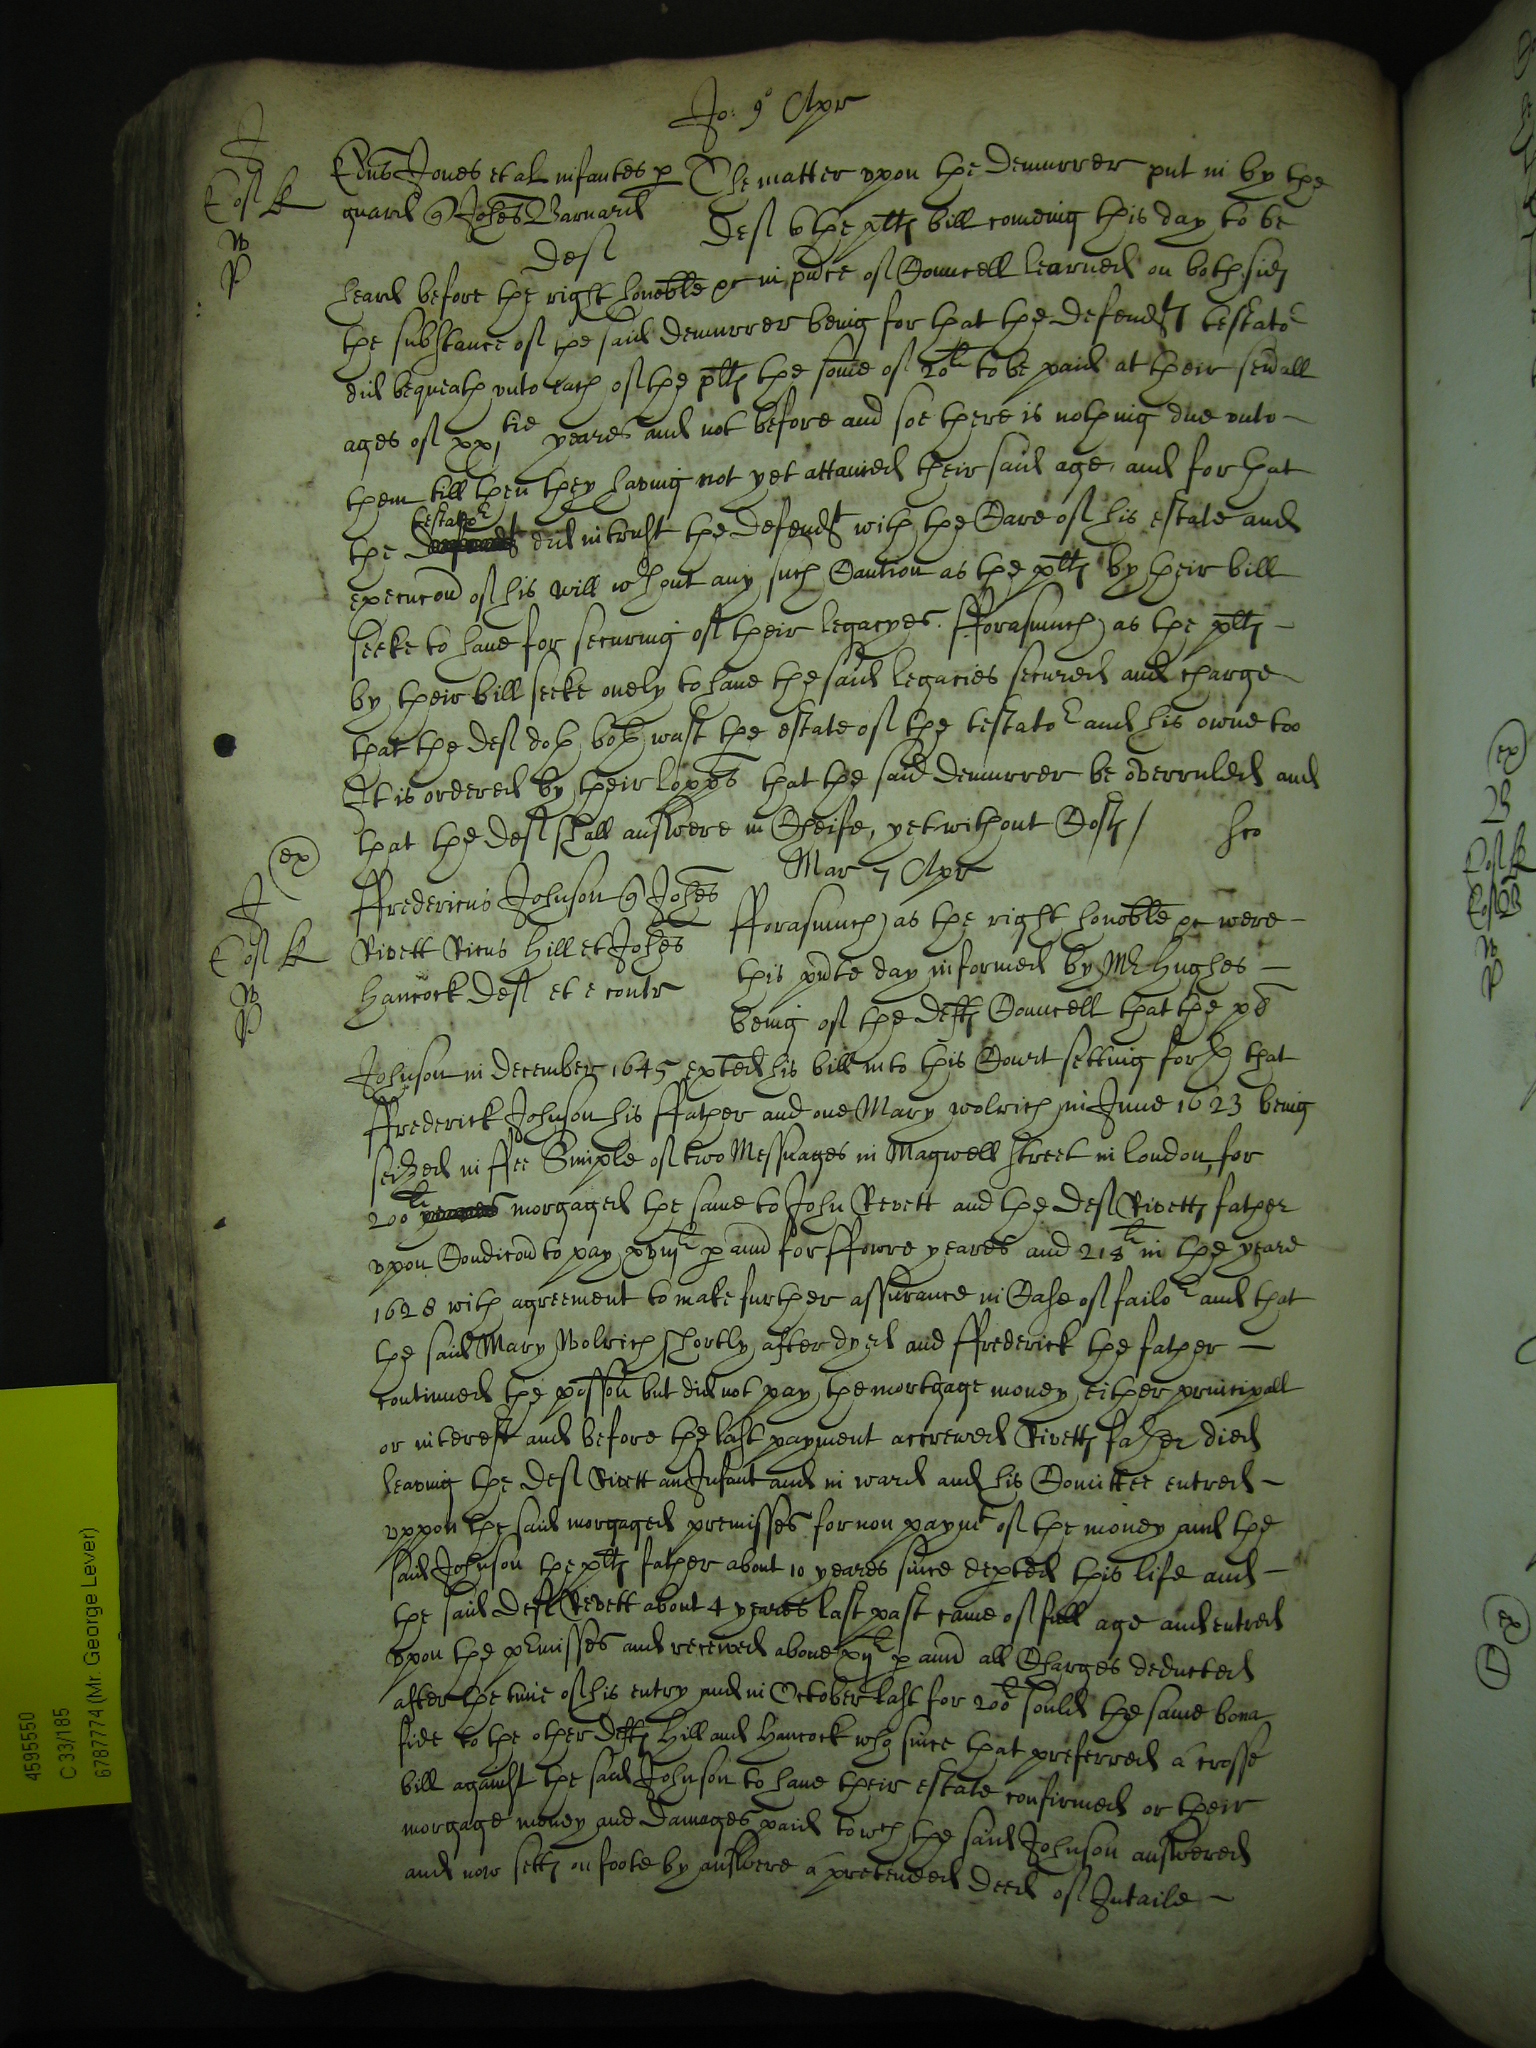 Jo: 9° Apr
Edrus Jones et al infantes p
guard q Johes Barnard
Def
The matter vpon the Demurrer put in by the
Def to the pltts bill comeing this day to be
heard before the right honoble &c in pnce of Councell learned on both sides
the substance of the said Demurrer being for that the Defendts testator
did bequeath vnto each of the pltts the some of 20li to be paid at their seuall
ages of xxjtie yeares and not before and soe there is nothing due vnto
them till then they having not yet attained their said age, and for that
the testator did intrust the Defendt with the Care of his estate and
execucon of his will wthout any such Caution as the pltts by their bill
seeke to have for securing of their legacyes. fforasmuch as the pltts
by their bill seeke onely to have the said legacies secured and charge
that the Def doth both wast the estate of the testator and his owne too
It is ordered by their lopps that the said Demurrer be overruled and
that the Def shall answere in Cheife, yet without Costs /
Mar 7 Apr
ex
ffredericus Johnson q Johes
Rivett Ricus Hill et Johes
Hancock Def et e contr
fforasmuch as the right honoble &c were
this pnte day informed by Mr Hughes
being of the Defts Councell that the pl
Johnson in December 1645 exhted his bill into this Court setting forth that
ffrederick Johnson his ffather and one Mary Wolrich in June 1623 being
seized in ffee Simple of two Messuages in Magwell Street in London, for
200li morgaged the same to John Revett and the Def Rivetts father
vpon Condicon to pay xviijli p ann for ffowre yeares and 218li in the yeare
1628 with agreement to make further assurance in Case of failor and that
the said Mary Wolrich shortly after dyed and ffrederick the father
continued the possion but did not pay the mortgage money either principall
or interest and before the last payment accrewed Rivetts father died
leaving the Def Rivett an Infant and in ward and his Comittee entred
vppon the said morgaged premisses for non paymt of the money and the
said Johnson the pltts father about 10 yeares since depted this life and
the said Deft Revett about 4 yeares last past came of full age and entred
vpon the pmisses and received above xijli p ann all Charges deducted
after the time of his entry and in October last for 200li sould the same bona
fide to the other Defts Hill and Hancock who since that preferred a crosse
bill against the said Johnson to have their estate confirmed or their
morgage money and Damages paid to wch the said Johnson answered
and now setts on foote by answere a pretended Deed of Intaile
4595550
C 33/185
6787774 (Mr. George Lever)